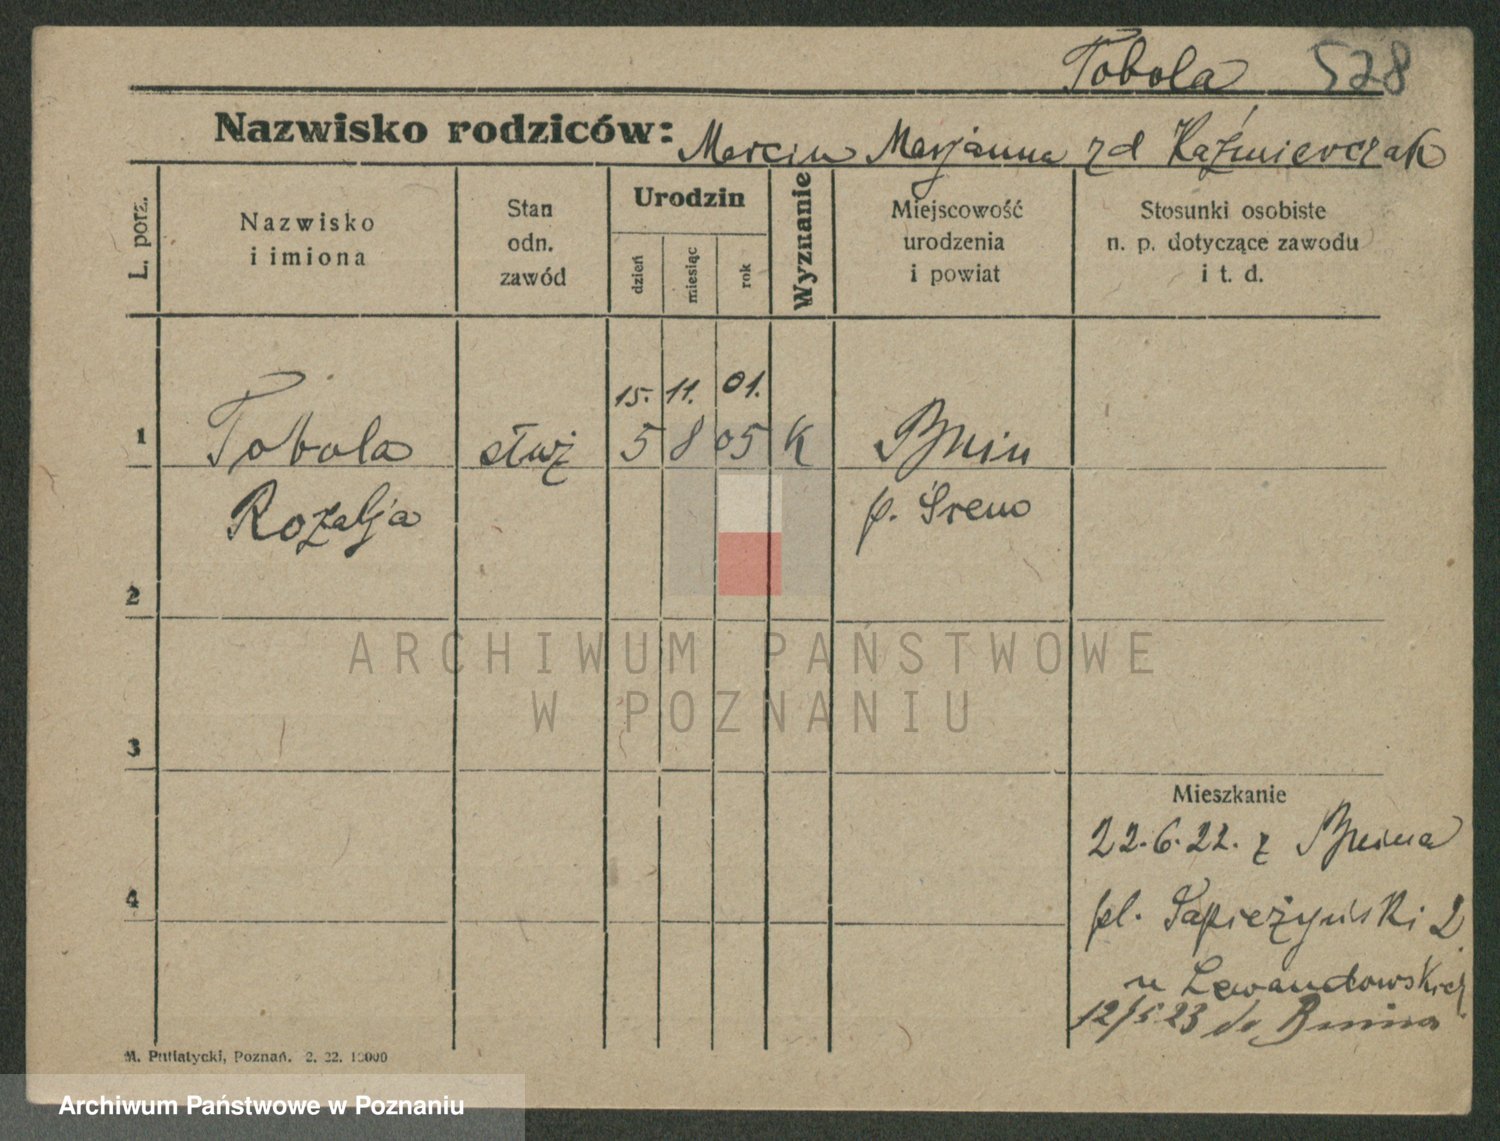 Tobola 528
Nazwisko rodziców: Marcin Marjanna zd Kaźmierczak
L. porz.
Nazwisko
i imiona
Stan
odn.
zawód
Urodzin
dzień
miesiąc
rok
Wyznanie
Miejscowość
urodzenia
i powiat
Stosunki osobiste
n. p. dotyczące zawodu
i t. d.
15. 11. 01.
1 Tobola służ 5 8 05 K Bnin
Rozalja p. Śrem
2
3
4
ARCHIWUM PAŃSTWOWE
W POZNANIU
Mieszkanie
22.6.22. z Bnina
pl. Sapieżyński 2
u Lewandowskiej
12/5 23 do Bnina
M. Putiatycki, Poznań. 2. 22. 10000
Archiwum Państwowe w Poznaniu